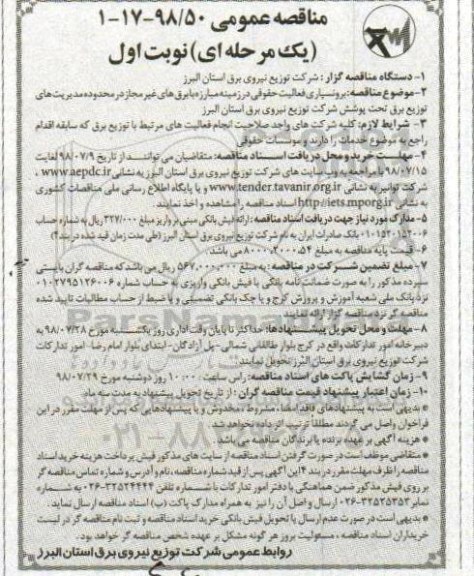 مناقصه عمومی ۹۸/۵۰-۱۷-۱
(یک مرحله ای) نوبت اول
۱- دستگاه مناقصه گزار: شرکت توزیع نیروی برق استان البرز
۲- موضوع مناقصه: برونسپاری فعالیت حقوقی در زمینه مبارزه با برق های غیر مجاز در محدوده مدیریت های
توزیع برق تحت پوشش شرکت توزیع نیروی برق استان البرز
۳- شرایط لازم: کلیه شرکت های واجد صلاحیت انجام فعالیت های مرتبط با توزیع برق که سابقه اقدام
راجع به موضوع خدمات را دارند و موسسات حقوقی
۴- مهلت خرید و محل دریافت اسناد مناقصه: متقاضیان می توانند از تاریخ ۹۸/۰۷/۹ لغایت
۹۸/۰۷/۱۵ با مراجعه به وب سایت های شرکت توزیع نیروی برق استان البرز به نشانی www.aepdc.ir ،
شرکت توانیر به نشانی www.tender.tavanir.org.ir و یا پایگاه اطلاع رسانی ملی مناقصات کشوری
به نشانی http://iets.mporg.ir اسناد مناقصه را مشاهده و اخذ نمایند
۵- مدارک مورد نیاز جهت دریافت اسناد مناقصه: ارائه فیش بانکی مبنی بر واریز مبلغ ۳۲۷/۰۰۰ ریال به شماره حساب
بانک صادرات ایران به نام شرکت توزیع نیروی برق استان البرز (طی مدت زمان قید شده در بند ۴)
۶- قیمت پایه مناقصه به مبلغ ریال می باشد
۷- مبلغ تضمین شرکت در مناقصه: به مبلغ ۵۶۷/۰۰۰/۰۰۰ ریال می باشد که مناقصه گران بایستی
سپرده مذکور را به صورت ضمانت نامه بانکی یا فیش بانکی واریزی به حساب شماره ۰۱۰۲۷۹۵۱۲۶۰۰۶
نزد بانک ملی شعبه آموزش و پرورش کرج و یا چک بانکی تضمینی و یا ضبط از حساب مطالبات تایید شده
مناقصه گر نزد مناقصه گزار ارائه نمایند
۸- مهلت و محل تحویل پیشنهادها: حداکثر تا پایان وقت اداری روز یکشنبه مورخ ۹۸/۰۷/۲۸ به
دبیرخانه امور تدارکات واقع در کرج بلوار طالقانی شمالی - پل آزادگان - ابتدای بلوار امام رضا - امور تدارکات
شرکت توزیع نیروی برق استان البرز تحویل نمایند
۹- زمان گشایش پاکت های اسناد مناقصه: راس ساعت ۱۰:۰۰ روز دوشنبه مورخ ۹۸/۰۷/۲۹
۱۰- زمان اعتبار پیشنهاد قیمت مناقصه گران: از تاریخ تحویل پیشنهاد به مدت سه ماه
* بدیهی است به پیشنهادهای فاقد امضاء، مشروط، مخدوش و یا پیشنهادهایی که پس از مهلت مقرر در این
فراخوان واصل می گردند مطلقا ترتیب اثر داده نخواهد شد
* هزینه آگهی بر عهده برنده یا برندگان مناقصه می باشد
* متقاضی موظف است در صورت گرفتن اسناد مناقصه از سایت های مذکور فیش پرداخت هزینه خرید اسناد
مناقصه را ظرف مهلت مقرر در بند ۴ این آگهی پس از قید شماره مناقصه، نام و آدرس و شماره تماس مناقصه گر
بر روی فیش مذکور ضمن هماهنگی با دفتر امور تدارکات با شماره تلفن ۳۲۵۲۴۴۴۴-۰۲۶ به شماره
نمابر ۳۲۵۲۵۳۵۲-۰۲۶ ارسال و اصل آن را نیز به همراه مدارک پاکت (ب) اسناد مناقصه ارسال نماید.
* بدیهی است در صورت عدم ارسال یا تحویل فیش بانکی خرید اسناد مناقصه و ثبت نام مناقصه گر در لیست
خریداران اسناد مناقصه، مسئولیت بروز هر گونه مشکل بر عهده شخص مناقصه گر خواهد بود.
روابط عمومی شرکت توزیع نیروی برق استان البرز